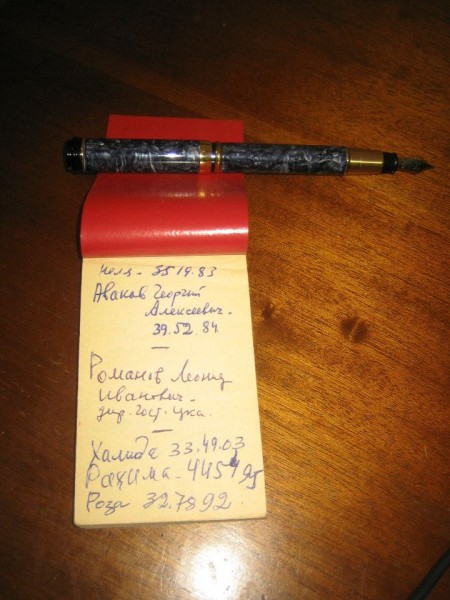 Неля - 35 19.83
Аваков Георгий
Алексеевич.
39.52.84
Романов Леонид
Иванович -
дир. гост. цка.
Халида 33.49.03
Рахима - 445495
Роза 32.7892